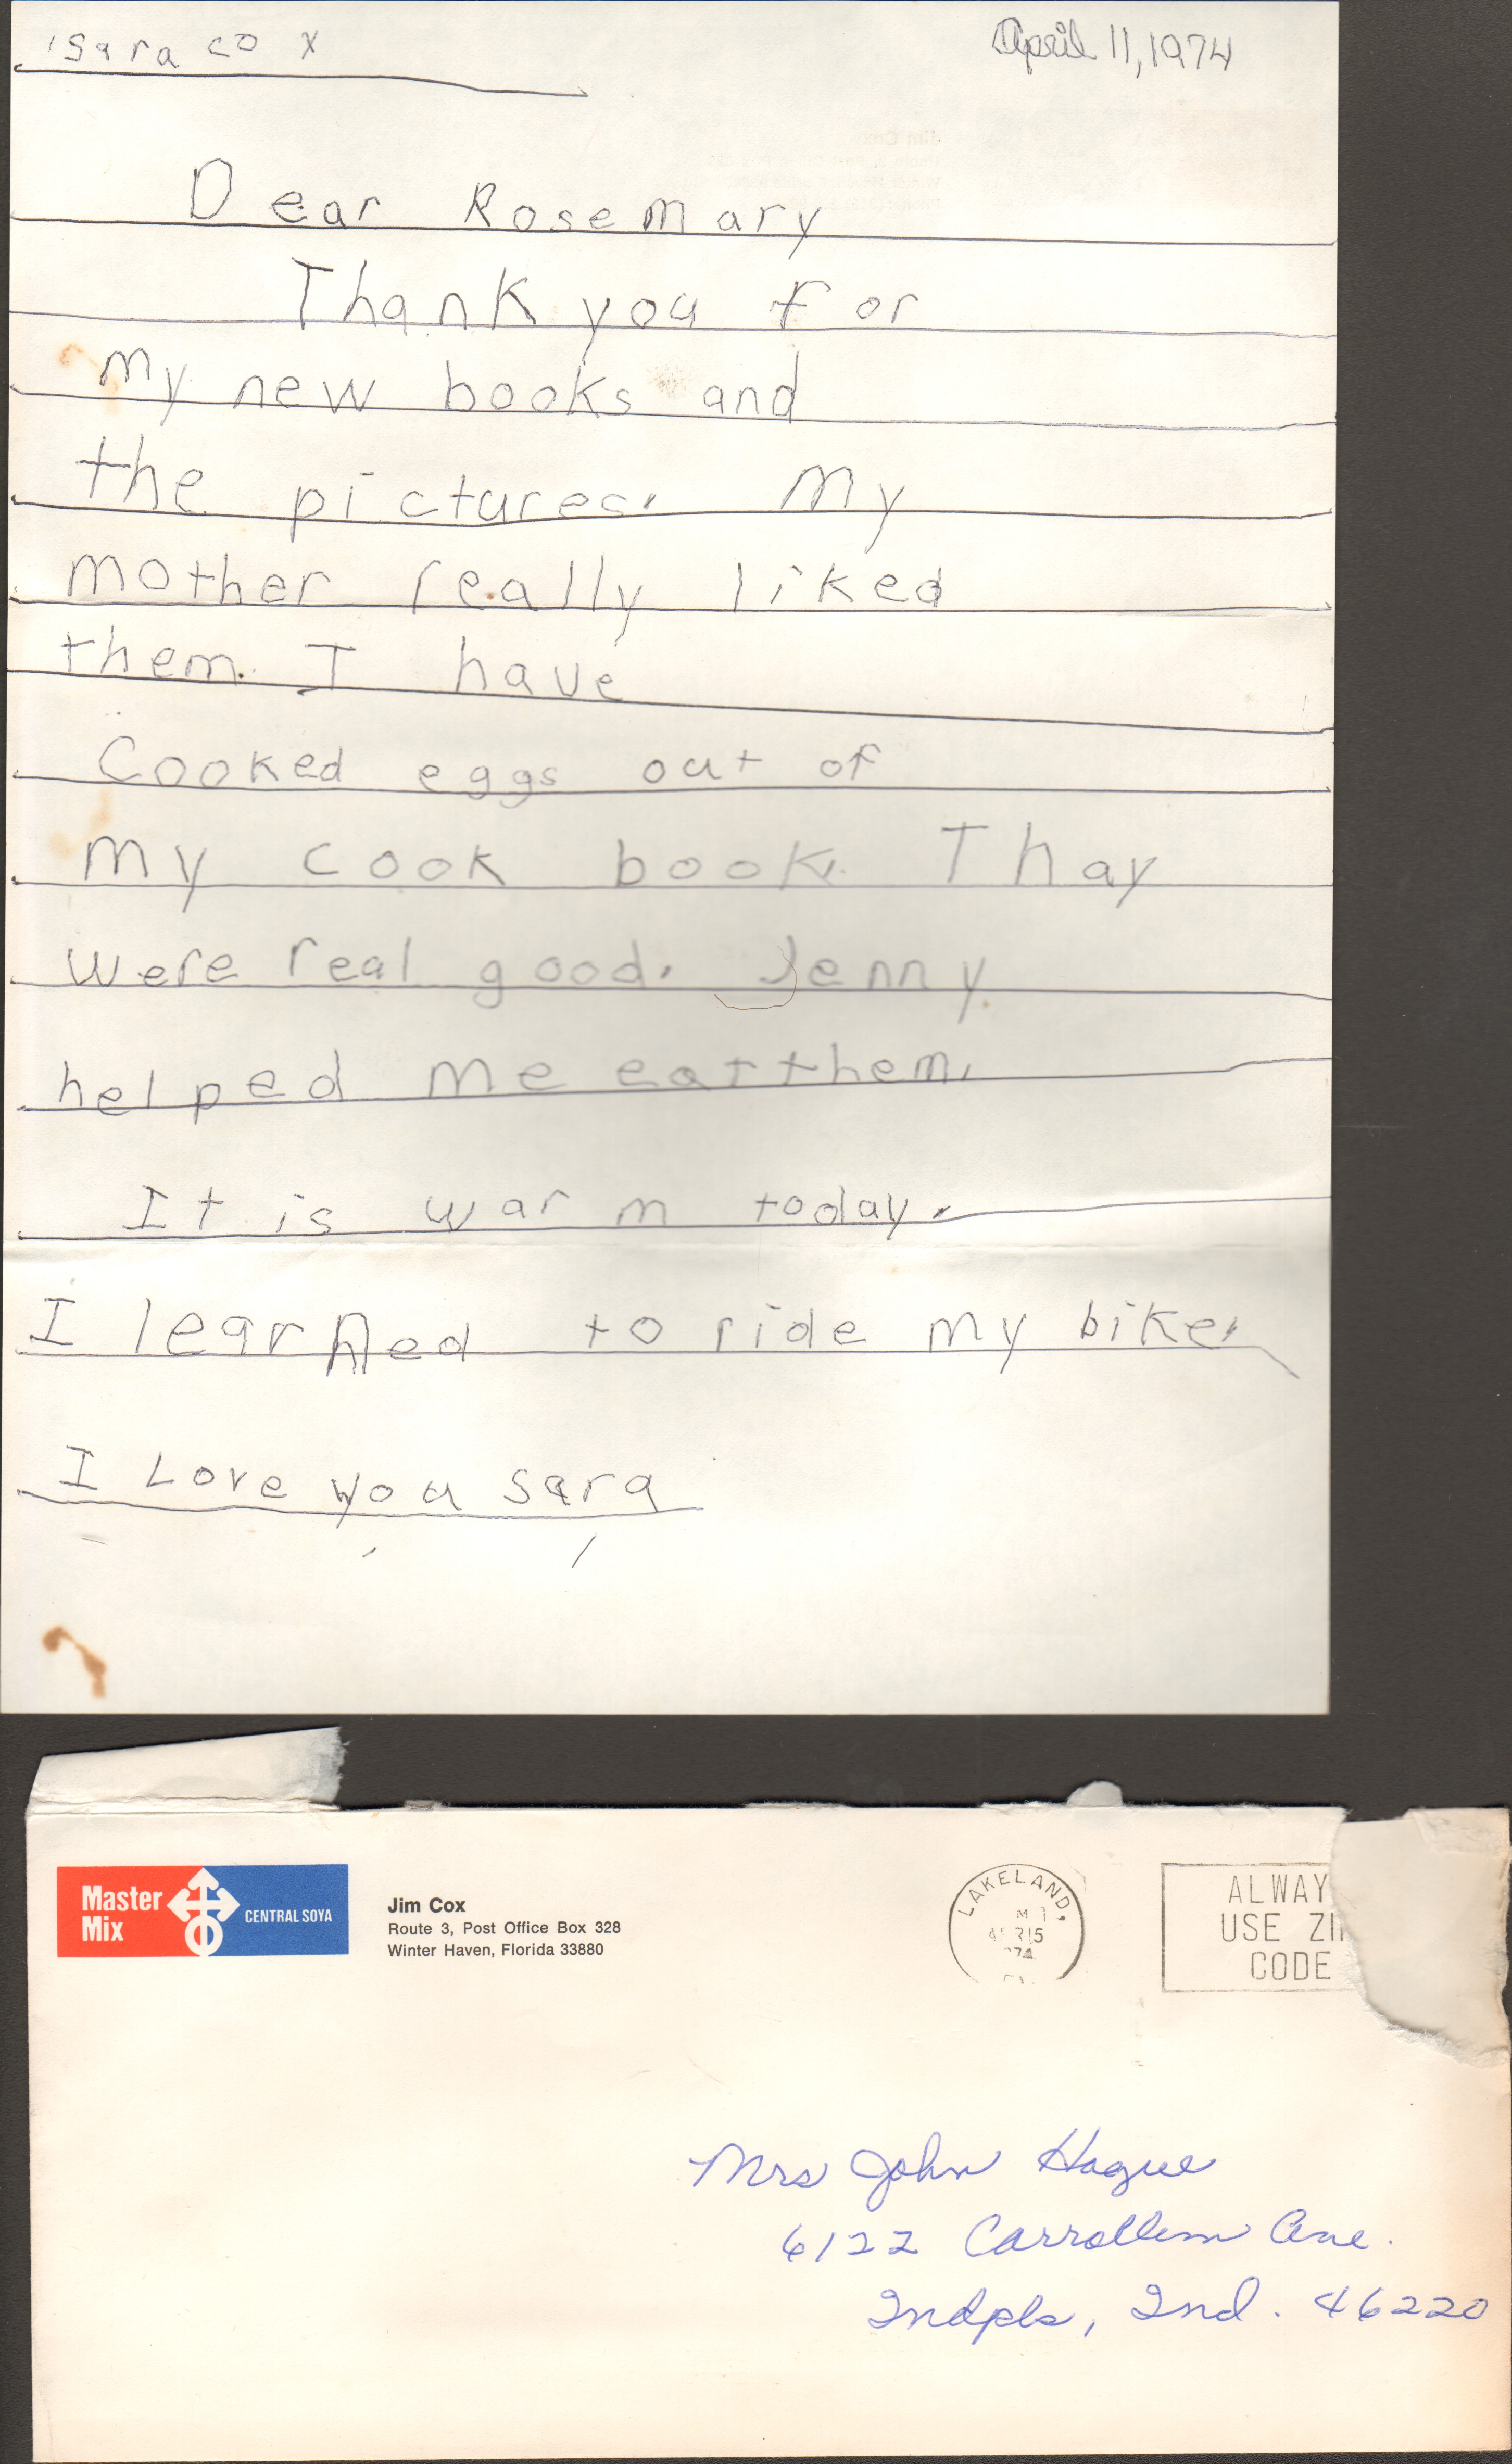 sara cox
April 11, 1974
Dear Rosemary
Thank you for
my new books and
the pictures. My
mother really liked
them. I have
Cooked eggs out of
my cook book. Thay
were real good. Jenny
helped me eat them.
It is warm today.
I learned to ride my bike.
I Love you sara
Master
Mix
CENTRAL SOYA
Jim Cox
Route 3, Post Office Box 328
Winter Haven, Florida 33880
LAKELAND,
APR 15
'74
ALWAY
USE ZI
CODE
Mrs John Hague
6122 Ave.
Indpls, Ind. 46220